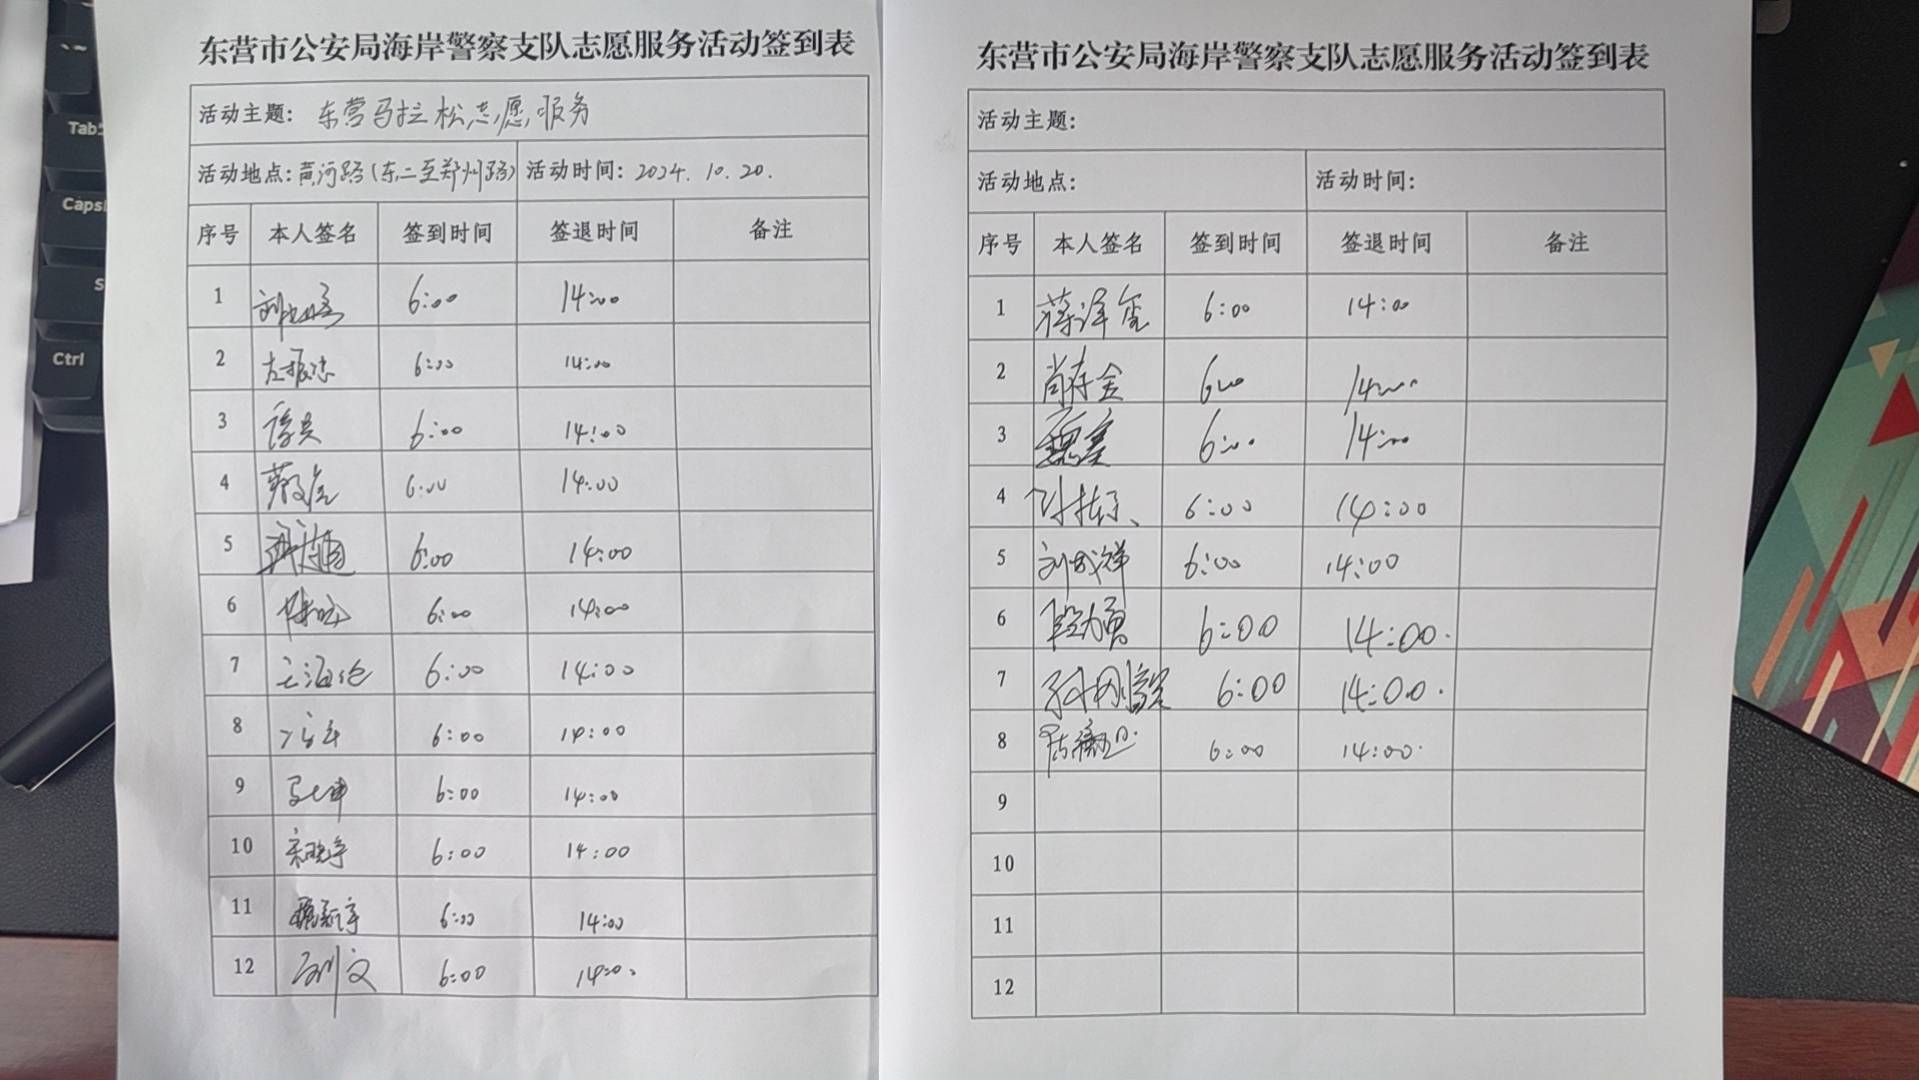 东营市公安局海岸警察支队志愿服务活动签到表
活动主题: 东营马拉松志愿服务
活动地点: 黄河路(东二至郑州路) 活动时间: 2024.10.20.
序号 本人签名 签到时间 签退时间 备注
1 6:00 14:00
2 左振忠 6:00 14:00
3 6:00 14:00
4 6:00 14:00
5 6:00 14:00
6 6:00 14:00
7 王海伦 6:00 14:00
8 6:00 14:00
9 6:00 14:00
10 宋晓宇 6:00 14:00
11 6:00 14:00
12 6:00 14:00
东营市公安局海岸警察支队志愿服务活动签到表
活动主题:
活动地点: 活动时间:
序号 本人签名 签到时间 签退时间 备注
1 蒋泽玺 6:00 14:00
2 肖存金 6:00 14:00
3 6:00 14:00
4 6:00 14:00
5 刘成洋 6:00 14:00
6 段为勇 6:00 14:00.
7 6:00 14:00.
8 6:00 14:00.
9
10
11
12
Tab
Caps
S
Ctrl